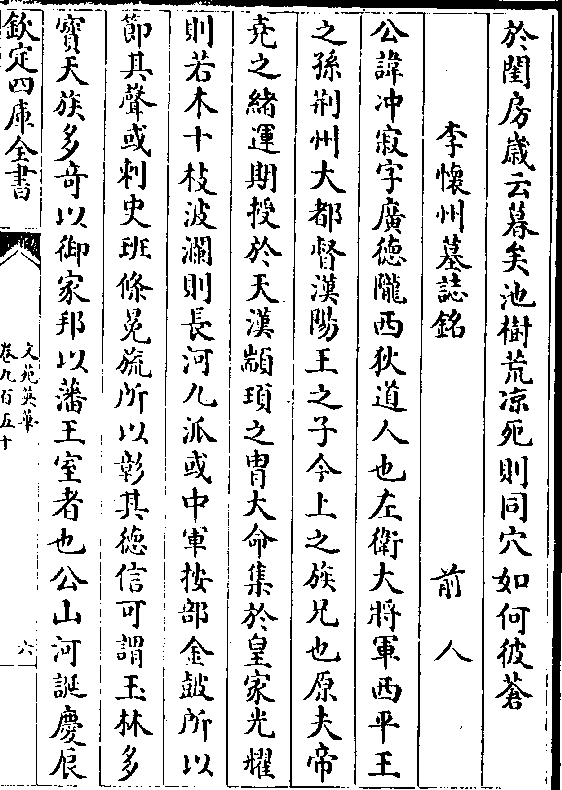 於閨房歳云暮矣池樹荒凉死則同穴如何彼蒼
李懷州墓誌銘　前人
公諱冲寂字廣德隴西狄道人也左衛大將軍西平王
之孫荆州大都督漢陽王之子今上之族兄也原夫帝
堯之緒運期授於天漢顓頊之胄大命集於皇家光耀
則若木十枝波瀾則長河九派或中軍按部金鼓所以
節其聲或刺史班條冕旒所以彰其德信可謂玉林多
寳天族多竒以御家邦以藩王室者也公山河誕慶辰
欽定四庫全書
文苑英華
卷九百五十
六